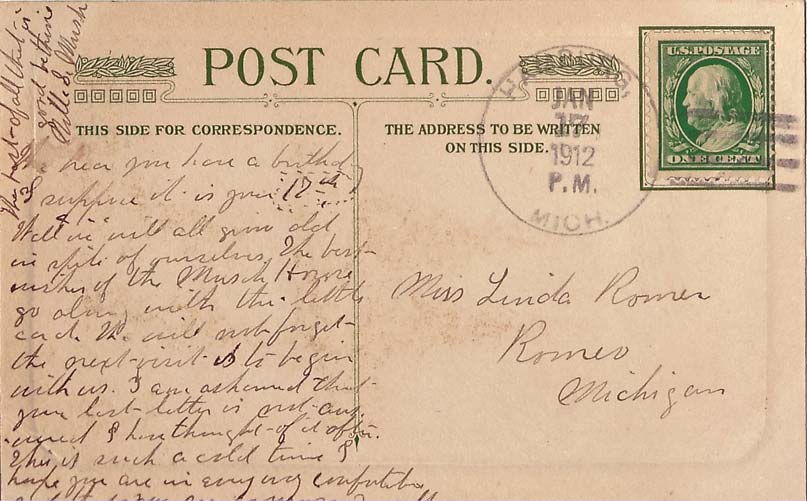 POST CARD.
THIS SIDE FOR CORRESPONDENCE.
THE ADDRESS TO BE WRITTEN
ON THIS SIDE.
U.S. POSTAGE
ONE CENT
JAN
17
1912
P.M.
MICH.
hear you have a birthday
I suppose it is your 17th
Well we will all grow old
in spite of ourselves. The best
wishes of the Musch House
go along with this little
card. We will not forget
the next visit is to begin
with us. I am ashamed that
your last letter is not ans
wered I have thought of it often.
This is such a cold time I
hope you are in every way comfortable
The best of all that is
good
Miss Linda Romer
Romeo
Michigan